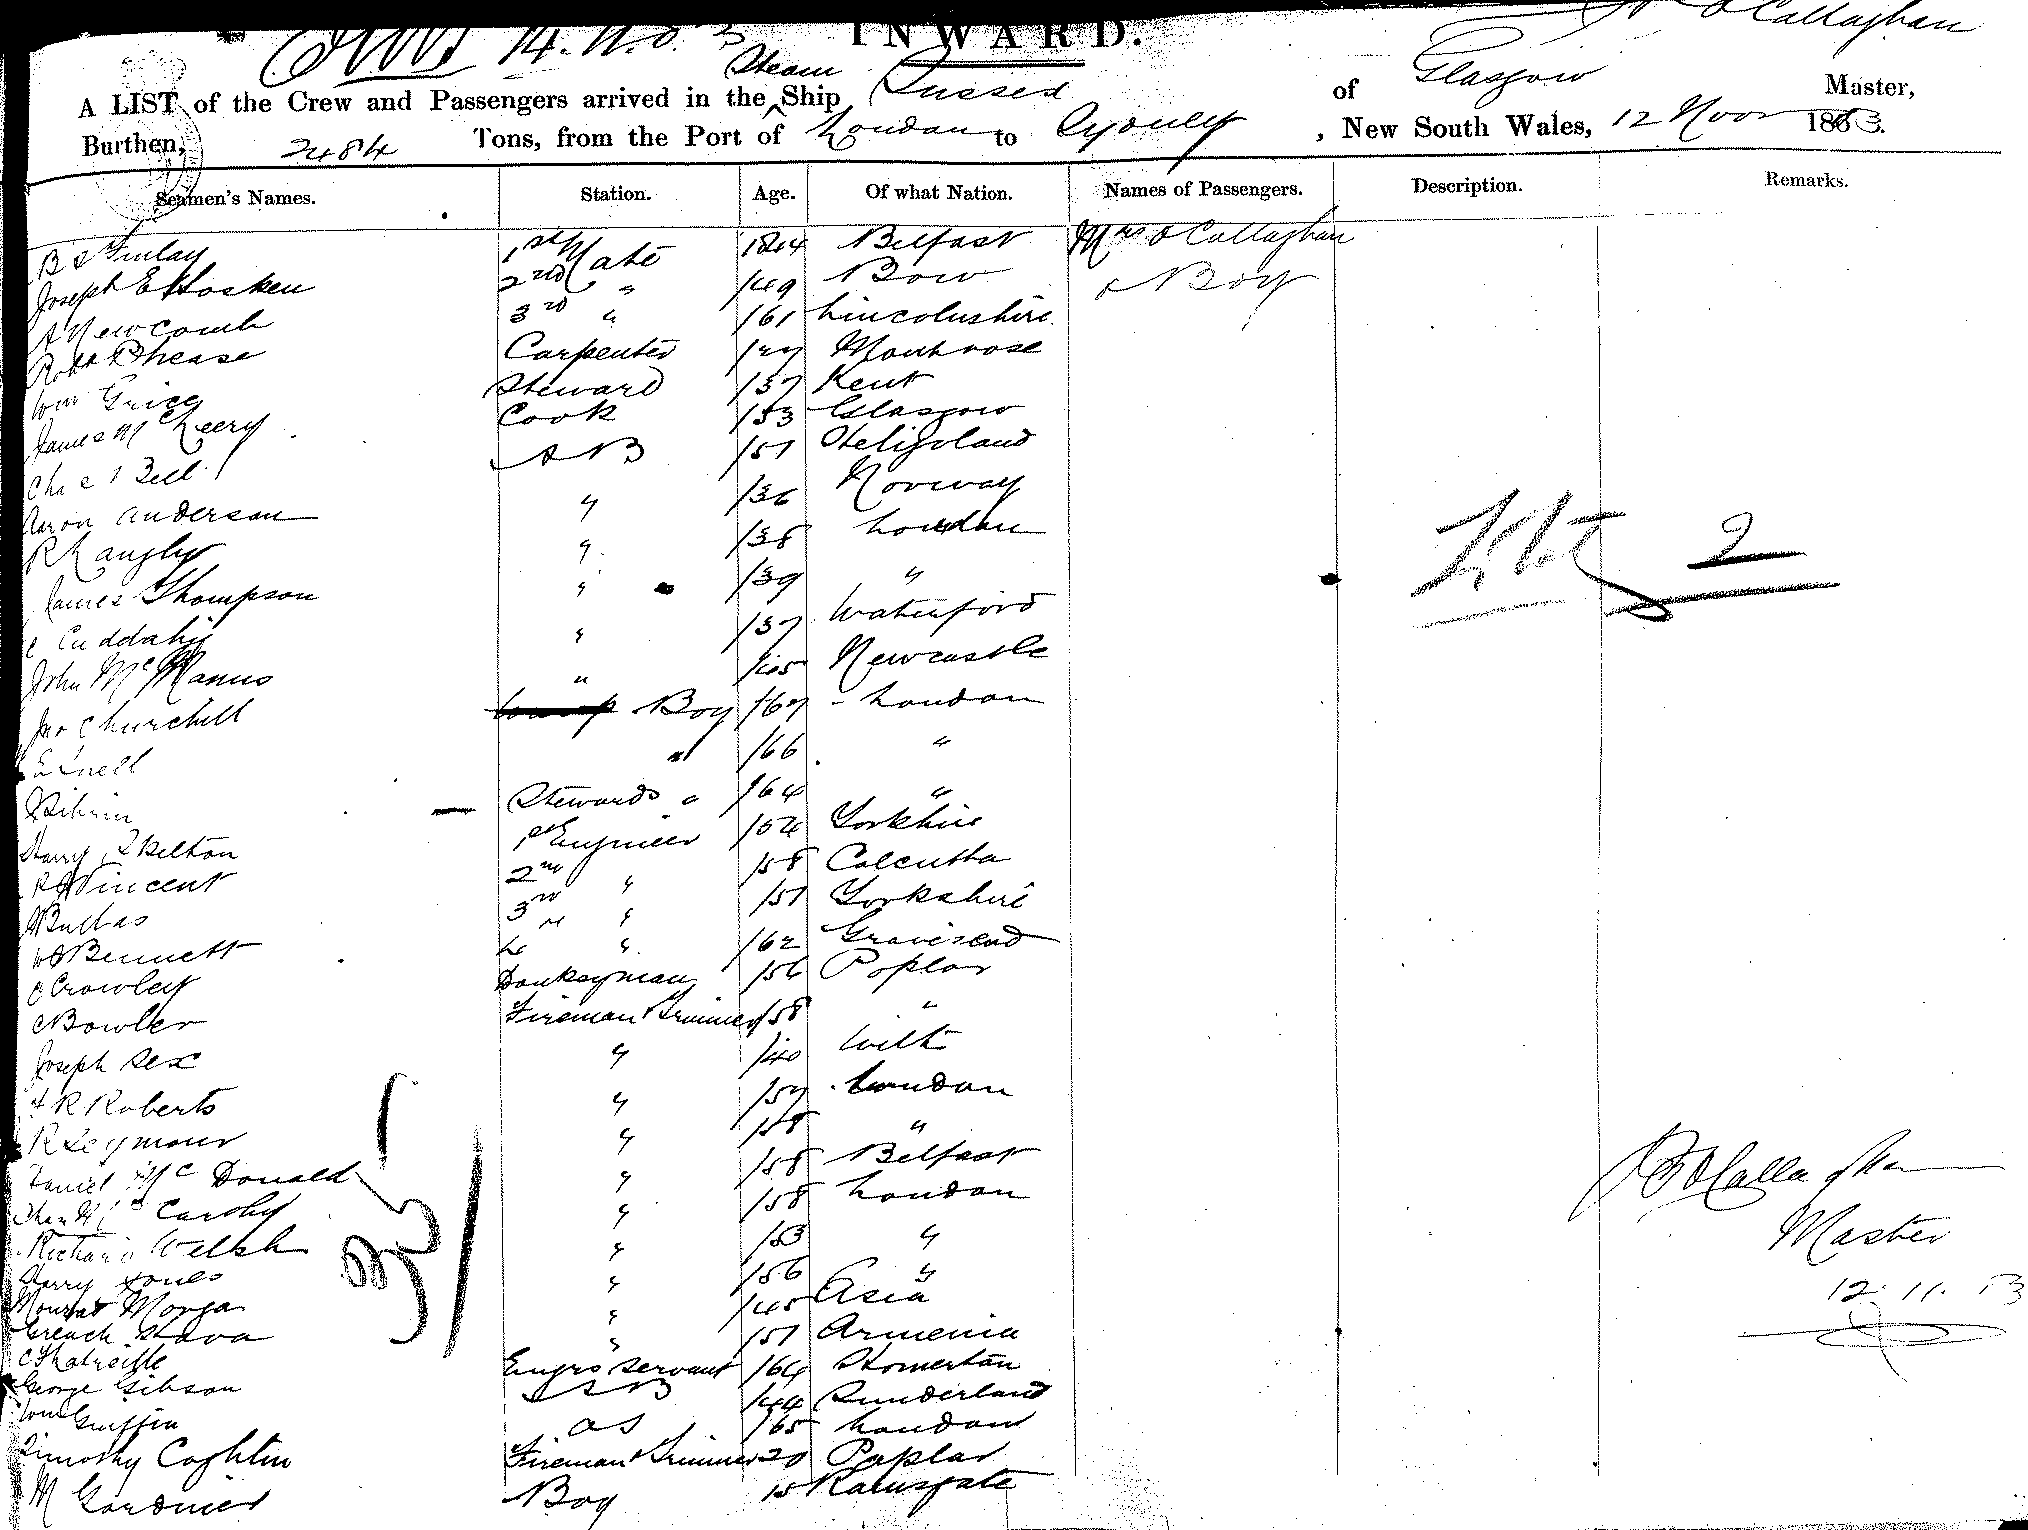 INWARD.
O'Callaghan
A LIST of the Crew and Passengers arrived in the Steam Ship Sussex of Glasgow Master,
Burthen, 2484 Tons, from the Port of London to Sydney, New South Wales, 12 Nov 1883.
Seamen's Names. Station. Age. Of what Nation. Names of Passengers. Description. Remarks.
B S Finlay 1st Mate 1844 Belfast Mrs O'Callaghan
Joseph E Hosken 2nd " /49 Bow & Boy
A Newcomb 3rd " /61 Lincolnshire
Robt Phease Carpenter Montrose
Wm Grieg Steward /37 Kent
James McCheery Cook /53 Glasgow
Bell AB /51 Heligoland
Aaron Anderson " /36 Norway
R Langley " /38 London
James Thompson " /39 "
Cuddahy " /37 Waterford
John McManus " /45 Newcastle
Jno Churchill Boy /67 London
" /66 "
Stewards " /64 "
Harry Skelton 1st Engineer /54 Yorkshire
Vincent 2nd " /58 Calcutta
3rd " /51 Yorkshire
Bennett 4 " /62 Gravesend
C Crowley Donkeyman /56 Poplar
C Bowler Fireman & Trimmer /58 "
Joseph Sex " /40 Wilts
F R Roberts " /57 London
R Seymour " /58 "
Daniel McDonald " /58 Belfast
McCarthy " /58 London
Richard Welsh " /53 "
Harry Jones " /56 "
Morga " /45 Asia
" /51 Armenia
Engrs Servant /64 Homerton
George Gibson AB /44 Sunderland
Wm Griffin OS /65 London
Timothy Coghlin Fireman & Trimmer 20 Poplar
M Gardner Boy 15 Ramsgate
2
35
O'Callaghan
Master
12.11.83